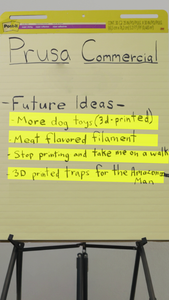 Post-it
Prusa Commercial
- Future Ideas -
- More dog toys (3d-printed)
- Meat flavored filament
- Stop printing and take me on a walk
- 3D printed traps for the Amazon
Man